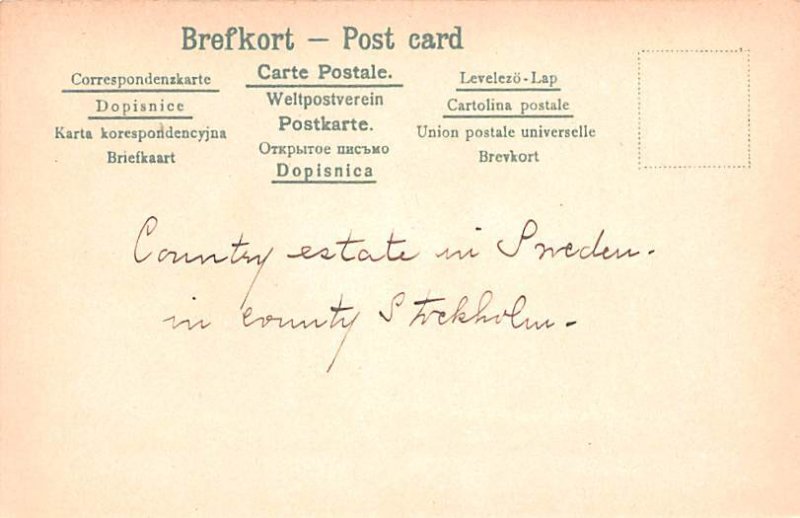 Brefkort — Post card
Correspondenzkarte
Dopisnice
Karta korespondencyjna
Briefkaart
Carte Postale.
Weltpostverein
Postkarte.
Открытое письмо
Dopisnica
Levelező-Lap
Cartolina postale
Union postale universelle
Brevkort
Country estate in Sweden.
in county Stockholm.